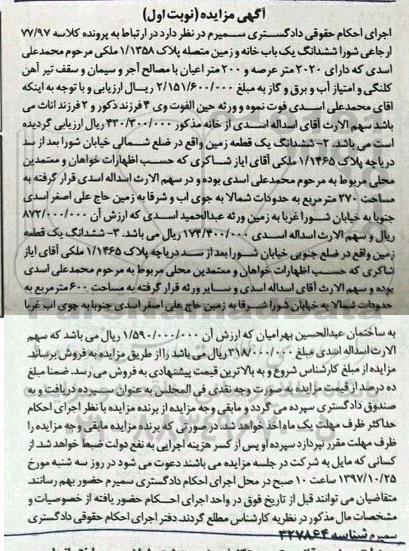 آگهی مزایده (نوبت اول)
اجرای احکام حقوقی دادگستری سمیرم در نظر دارد در ارتباط به پرونده کلاسه ۷۷/۹۷
ارجاعی شورا ششدانگ یک باب خانه و زمین متصله پلاک ۱/۱۳۵۸ ملکی مرحوم محمدعلی
اسدی که دارای ۲۰۲۰ متر عرصه و ۲۰۰ متر اعیان با مصالح آجر و سیمان و سقف تیر آهن
کلنگی و امتیاز آب و برق و گاز به مبلغ ۲/۱۵۱/۶۰۰/۰۰۰ ریال ارزیابی و با توجه به اینکه
آقای محمدعلی اسدی فوت نموه و ورثه حین الفوت وی ۴ فرزند ذکور و ۲ فرزند اناث می
باشد سهم الارث آقای اسداله اسدی از خانه مذکور ۴۳۰/۳۰۰/۰۰۰ ریال ارزیابی گردیده
است می باشد. ۲- ششدانگ یک قطعه زمین واقع در ضلع شمالی خیابان شورا بعد از سد
دریاچه پلاک ۱/۱۴۶۵ ملکی آقای ایاز شاکری که حسب اظهارات خواهان و معتمدین
محلی مربوط به مرحوم محمدعلی اسدی بوده و در سهم الارث اسداله اسدی قرار گرفته به
مساحت ۲۷۰ مترمربع به حدودات شمالا به جوی آب و شرقا به زمین حاج علی اصغر اسدی
جنوبا به خیابان شورا غربا به زمین ورثه عبدالحمید اسدی که ارزش آن ۸۷۲/۰۰۰/۰۰۰
ریال و سهم الارث اسداله اسدی ۱۷۴/۴۰۰/۰۰۰ ریال می باشد. ۳- ششدانگ یک قطعه
زمین واقع در ضلع جنوبی خیابان شورا بعد از سد دریاچه پلاک ۱/۱۴۶۵ ملکی آقای ایاز
شاکری که حسب اظهارات خواهان و معتمدین محلی مربوط به مرحوم محمدعلی اسدی
بوده و سهم الارث آقای اسداله اسدی و سایر ورثه قرار گرفته به مساحت ۶۰۰ مترمربع به
حدودات شمالا به خیابان شورا شرقا به زمین حاج علی اصغر اسدی جنوبا به جوی آب غربا
به ساختمان عبدالحسین بهرامیان که ارزش آن ۱/۵۹۰/۰۰۰/۰۰۰ ریال می باشد که سهم
الارث اسداله اسدی مبلغ ۳۱۸/۰۰۰/۰۰۰ ریال می باشد را از طریق مزایده به فروش برساند.
مزایده از مبلغ کارشناس شروع و به بالاترین قیمت پیشنهادی به فروش می رسد. ضمنا مبلغ
ده درصد از قیمت مزایده به صورت وجه نقدی فی المجلس به عنوان سپرده دریافت و به
صندوق دادگستری سپرده می گردد و مابقی وجه مزایده از برنده مزایده با نظر اجرای احکام
حداکثر ظرف مهلت یک ماه اخذ خواهد شد. در صورتی که برنده مزایده مابقی وجه مزایده را
ظرف مهلت مقرر نپردازد سپرده او پس از کسر هزینه اجرایی به نفع دولت ضبط خواهد شد. از
کسانی که مایل به شرکت در جلسه مزایده می باشند دعوت می شود در روز سه شنبه مورخ
۱۳۹۷/۱۰/۲۵ ساعت ۱۰ صبح در محل اجرای احکام دادگستری سمیرم حضور بهم رسانند.
متقاضیان می توانند قبل از تاریخ فوق در واحد اجرای احکام حضور یافته از خصوصیات و
مشخصات مال مذکور در نظریه کارشناس مطلع گردند. دفتر اجرای احکام حقوقی دادگستری
سمیرم شناسه ۳۲۷۸۶۴